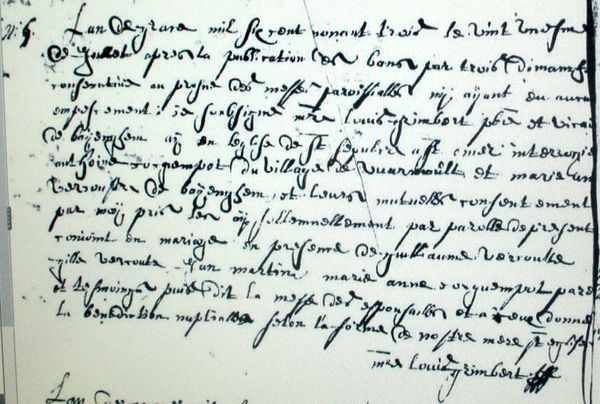 L'an de grace mil six cent nonant trois le vint
de Jullet apres la publication des bans par trois dimanche
consecutive au prosne des messes paroissialles n'ÿ aÿant eu aucu
empeschement je soubsigné mre Louis Grimbert pbre et vicai
de baÿenghem aÿ en leglise de st sepulcre a st omer interrogé
anthoine corquempot du village de et marie
vercoustre de baÿenghem et leurs mutuelles consentement
par moÿ pris les aÿ sollemnellement par parolle de present
conioint en mariage en presence de guillaume vercoutte
gille vercoutte martin marie anne corquempot pare
et tesmoings puis dit la messe des espousailles et a iceux donné
la benediction nuptialle selon la forme de nostre mere ste eglise
mre Louis Grimbert
L'an